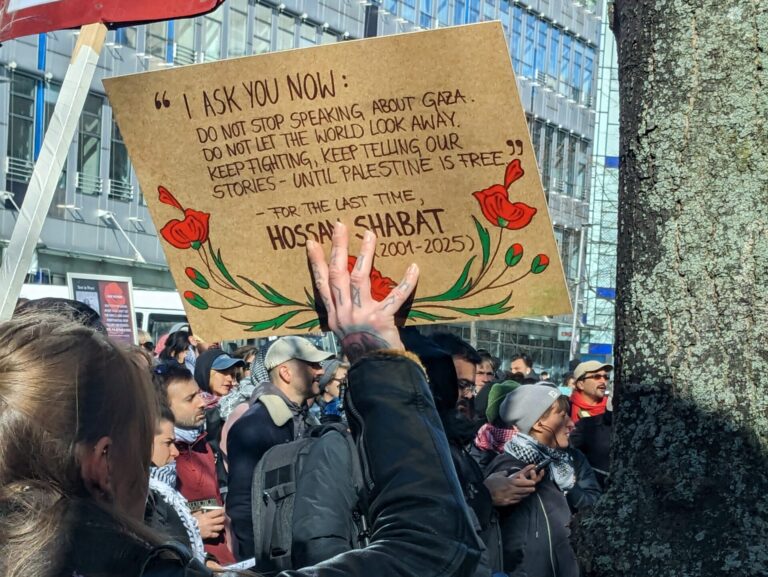 “ I ASK YOU NOW:
DO NOT STOP SPEAKING ABOUT GAZA.
DO NOT LET THE WORLD LOOK AWAY.
KEEP FIGHTING, KEEP TELLING OUR
STORIES - UNTIL PALESTINE IS FREE.”
- FOR THE LAST TIME,
HOSSAM SHABAT
(2001-2025)